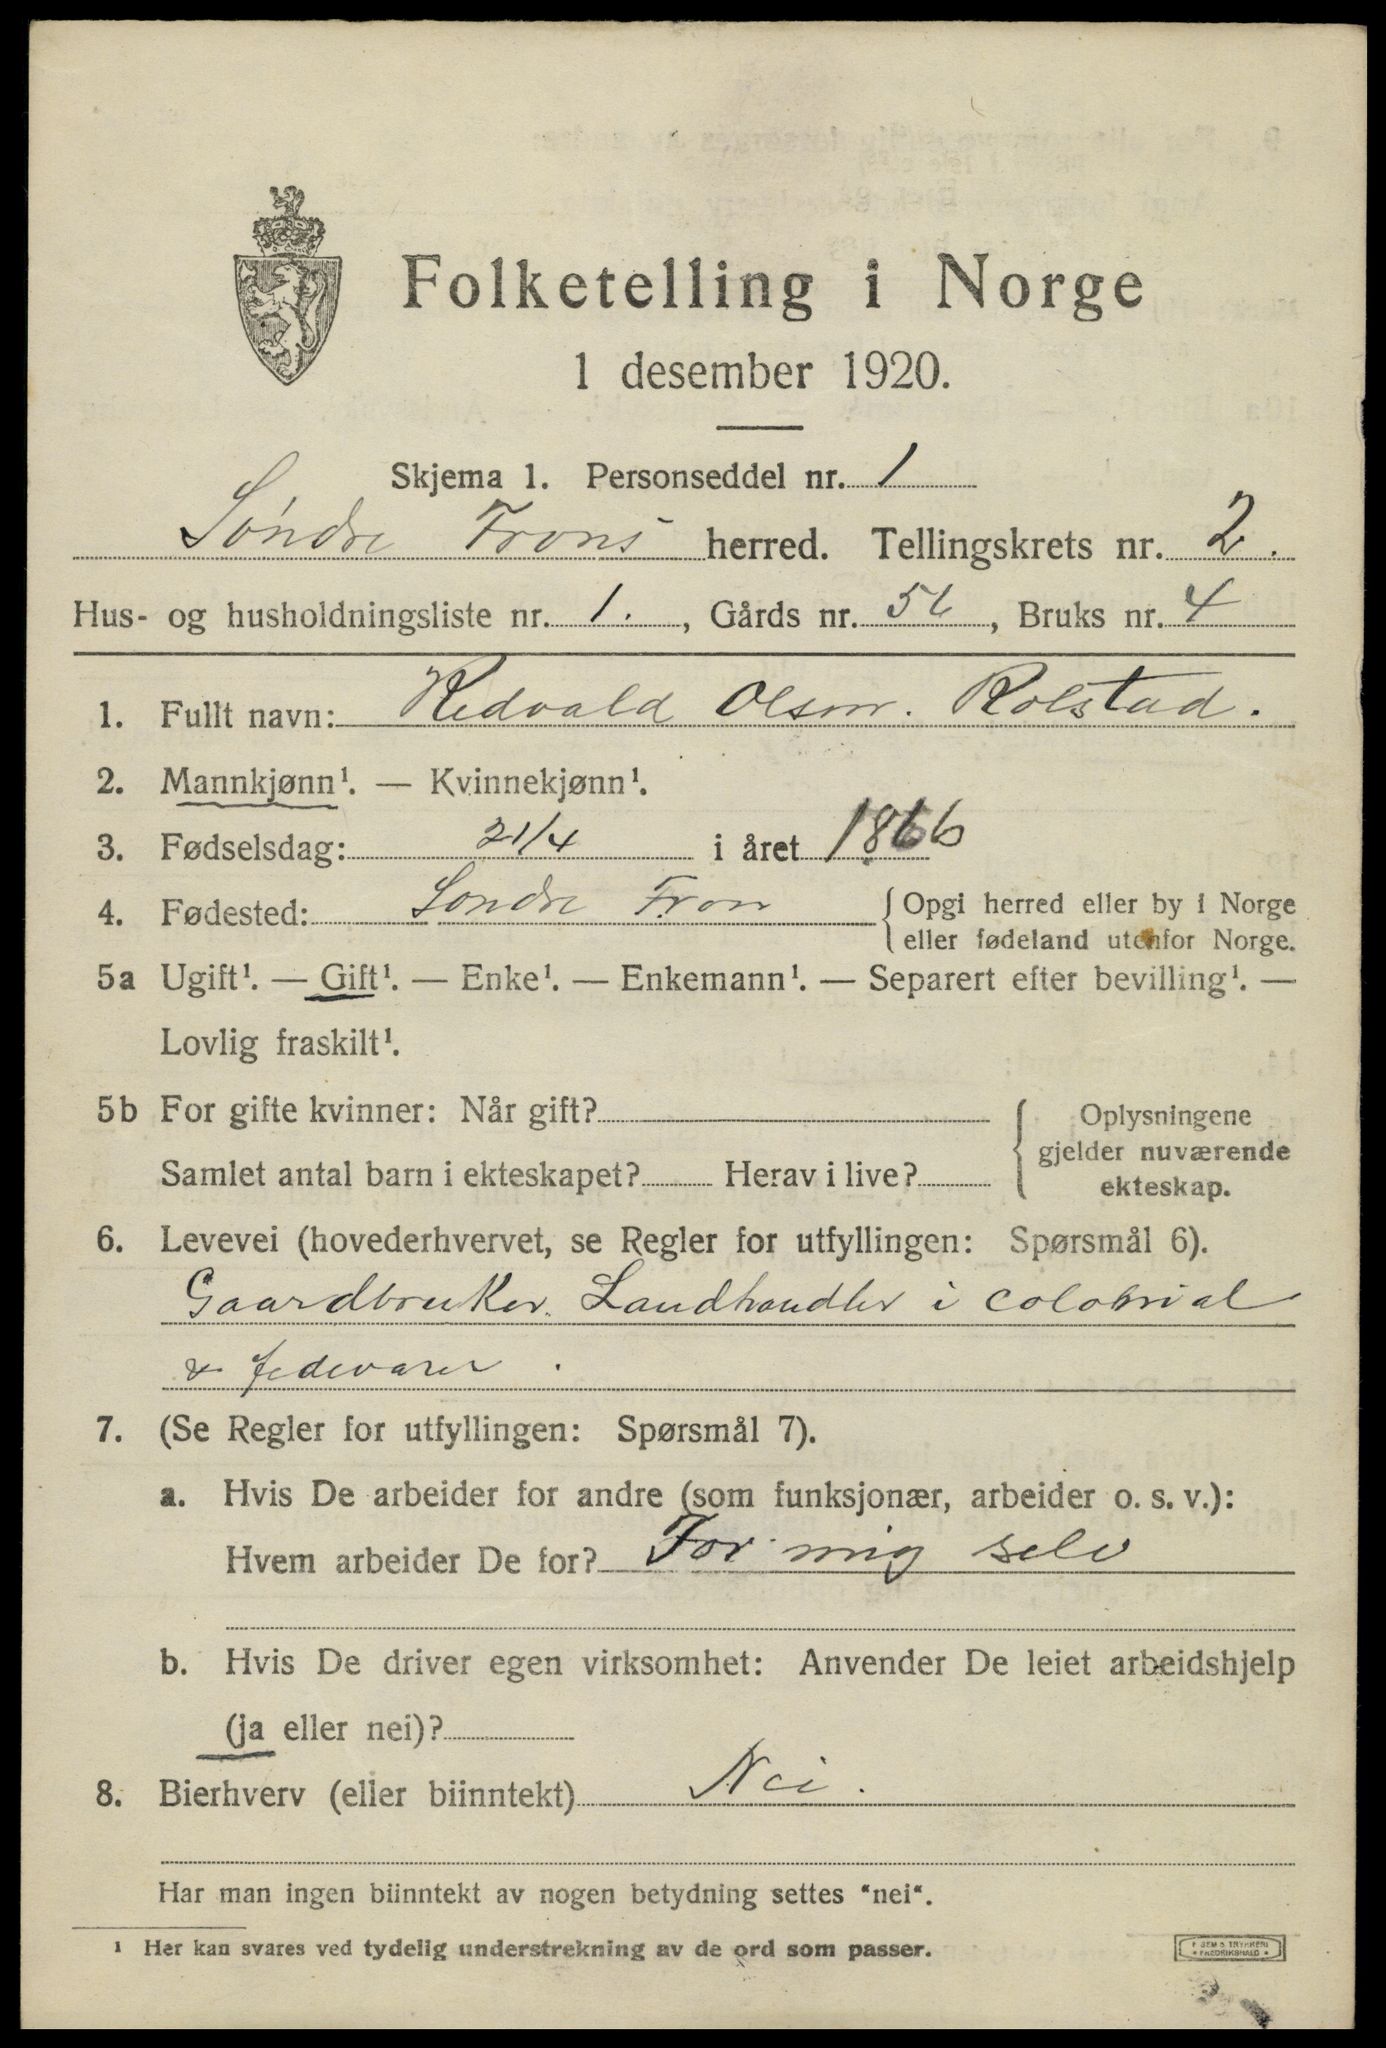 Folketelling i Norge
1 desember 1920.
Skjema 1. Personseddel nr. 1
Søndre Frons herred. Tellingskrets nr. 2.
Hus- og husholdningsliste nr. 1., Gårds nr. 56, Bruks nr. 4
1. Fullt navn: Redvald Olsen. Rolstad.
2. Mannkjønn¹. — Kvinnekjønn¹.
3. Fødselsdag: 21/4 i året 1866
4. Fødested: Søndre Fron { Opgi herred eller by i Norge
eller fødeland utenfor Norge.
5a Ugift¹. — Gift¹. — Enke¹. — Enkemann¹. — Separert efter bevilling¹. —
Lovlig fraskilt¹.
5b For gifte kvinner: Når gift? { Oplysningene
gjelder nuværende
Samlet antal barn i ekteskapet? Herav i live? ekteskap.
6. Levevei (hovederhvervet, se Regler for utfyllingen: Spørsmål 6).
Gaardbruker. Landhandler i colonial
& fedevarer.
7. (Se Regler for utfyllingen: Spørsmål 7).
a. Hvis De arbeider for andre (som funksjonær, arbeider o. s. v.):
Hvem arbeider De for? For mig selv
b. Hvis De driver egen virksomhet: Anvender De leiet arbeidshjelp
(ja eller nei)?
8. Bierhverv (eller biinntekt) Nei.
Har man ingen biinntekt av nogen betydning settes "nei".
¹ Her kan svares ved tydelig understrekning av de ord som passer.
E. SEM'S TRYKKERI
• FREDRIKSHALD •